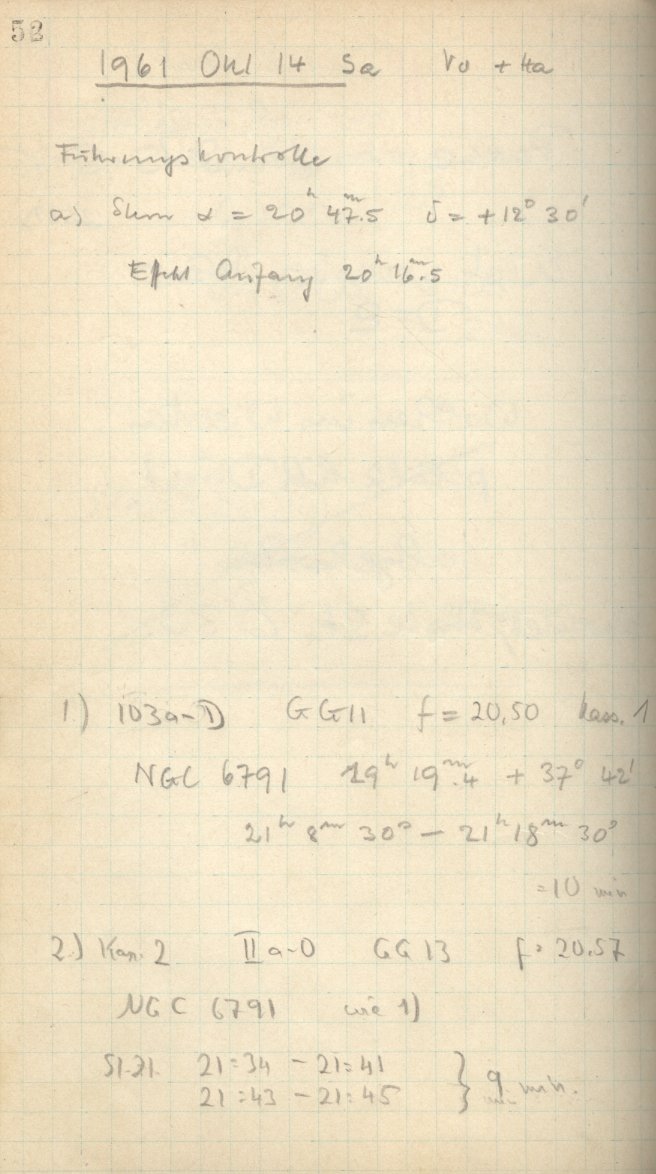 52
1961 Okt 14 Sa Vo + Ha
Führungskontrolle
a) Stern α = 20ʰ 47ᵐ.5 δ = +12° 30'
Effekt Anfang 20ʰ 16ᵐ.5
1) 103a-D GG11 f = 20,50 Kass. 1
NGC 6791 19ʰ 19ᵐ.4 + 37° 42'
21ʰ 8ᵐ 30ˢ – 21ʰ 18ᵐ 30ˢ
=10 min
2) Kas. 2 IIa-O GG 13 f = 20.57
NGC 6791 wie 1)
St.Zt. 21:34 – 21:41
21:43 – 21:45 } 9 min.